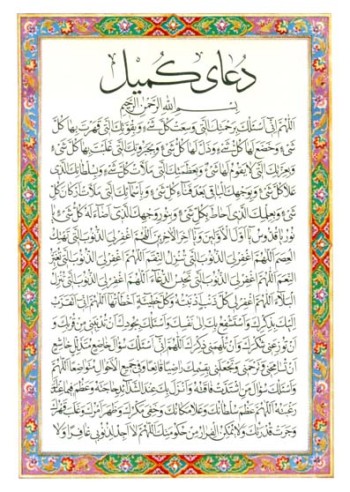 دعای کمیل
بسم الله الرحمن الرحیم
اللهم انی اسئلک برحمتک التی وسعت کل شیء و بقوتک التی قهرت بها کل
شیء و خضع لها کل شیء و ذل لها کل شیء و بجبروتک التی غلبت بها کل شیء
و بعزتک التی لا یقوم لها شیء و بعظمتک التی ملأت کل شیء و بسلطانک الذی
علا کل شیء و بوجهک الباقی بعد فناء کل شیء و باسمائک التی ملأت ارکان کل
شیء و بعلمک الذی احاط بکل شیء و بنور وجهک الذی اضاء له کل شیء یا
نور یا قدوس یا اول الاولین و یا اخر الاخرین اللهم اغفر لی الذنوب التی تهتک
العصم اللهم اغفر لی الذنوب التی تنزل النقم اللهم اغفر لی الذنوب التی تغیر
النعم اللهم اغفر لی الذنوب التی تحبس الدعاء اللهم اغفر لی الذنوب التی تنزل
البلاء اللهم اغفر لی کل ذنب اذنبته و کل خطیئة اخطأتها اللهم انی اتقرب
الیک بذکرک و استشفع بک الی نفسک و اسئلک بجودک ان تدنینی من قربک و
ان توزعنی شکرک و ان تلهمنی ذکرک اللهم انی اسئلک سؤال خاضع متذلل خاشع
ان تسامحنی و ترحمنی و تجعلنی بقسمک راضیا قانعا و فی جمیع الاحوال متواضعا اللهم
و اسئلک سؤال من اشتدت فاقته و انزل بک عند الشدائد حاجته و عظم فیما عندک
رغبته اللهم عظم سلطانک و علا مکانک و خفی مکرک و ظهر امرک و غلب قهرک
و جرت قدرتک و لا یمکن الفرار من حکومتک اللهم لا اجد لذنوبی غافرا و لا